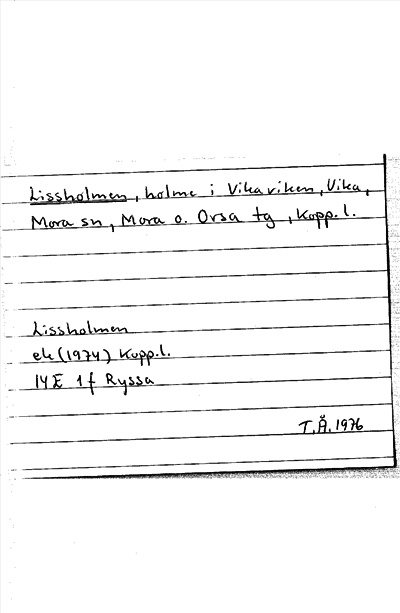 Lissholmen, holme i Vikaviken, Vika,
Mora sn, Mora o. Orsa tg, Kopp. l.
Lissholmen
ek (1974) Kopp.l.
14E 1f Ryssa
T.Å. 1976